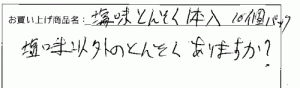 お買い上げ商品名：塩味とんそく体入 10個パック
塩味以外のとんそくありますか？